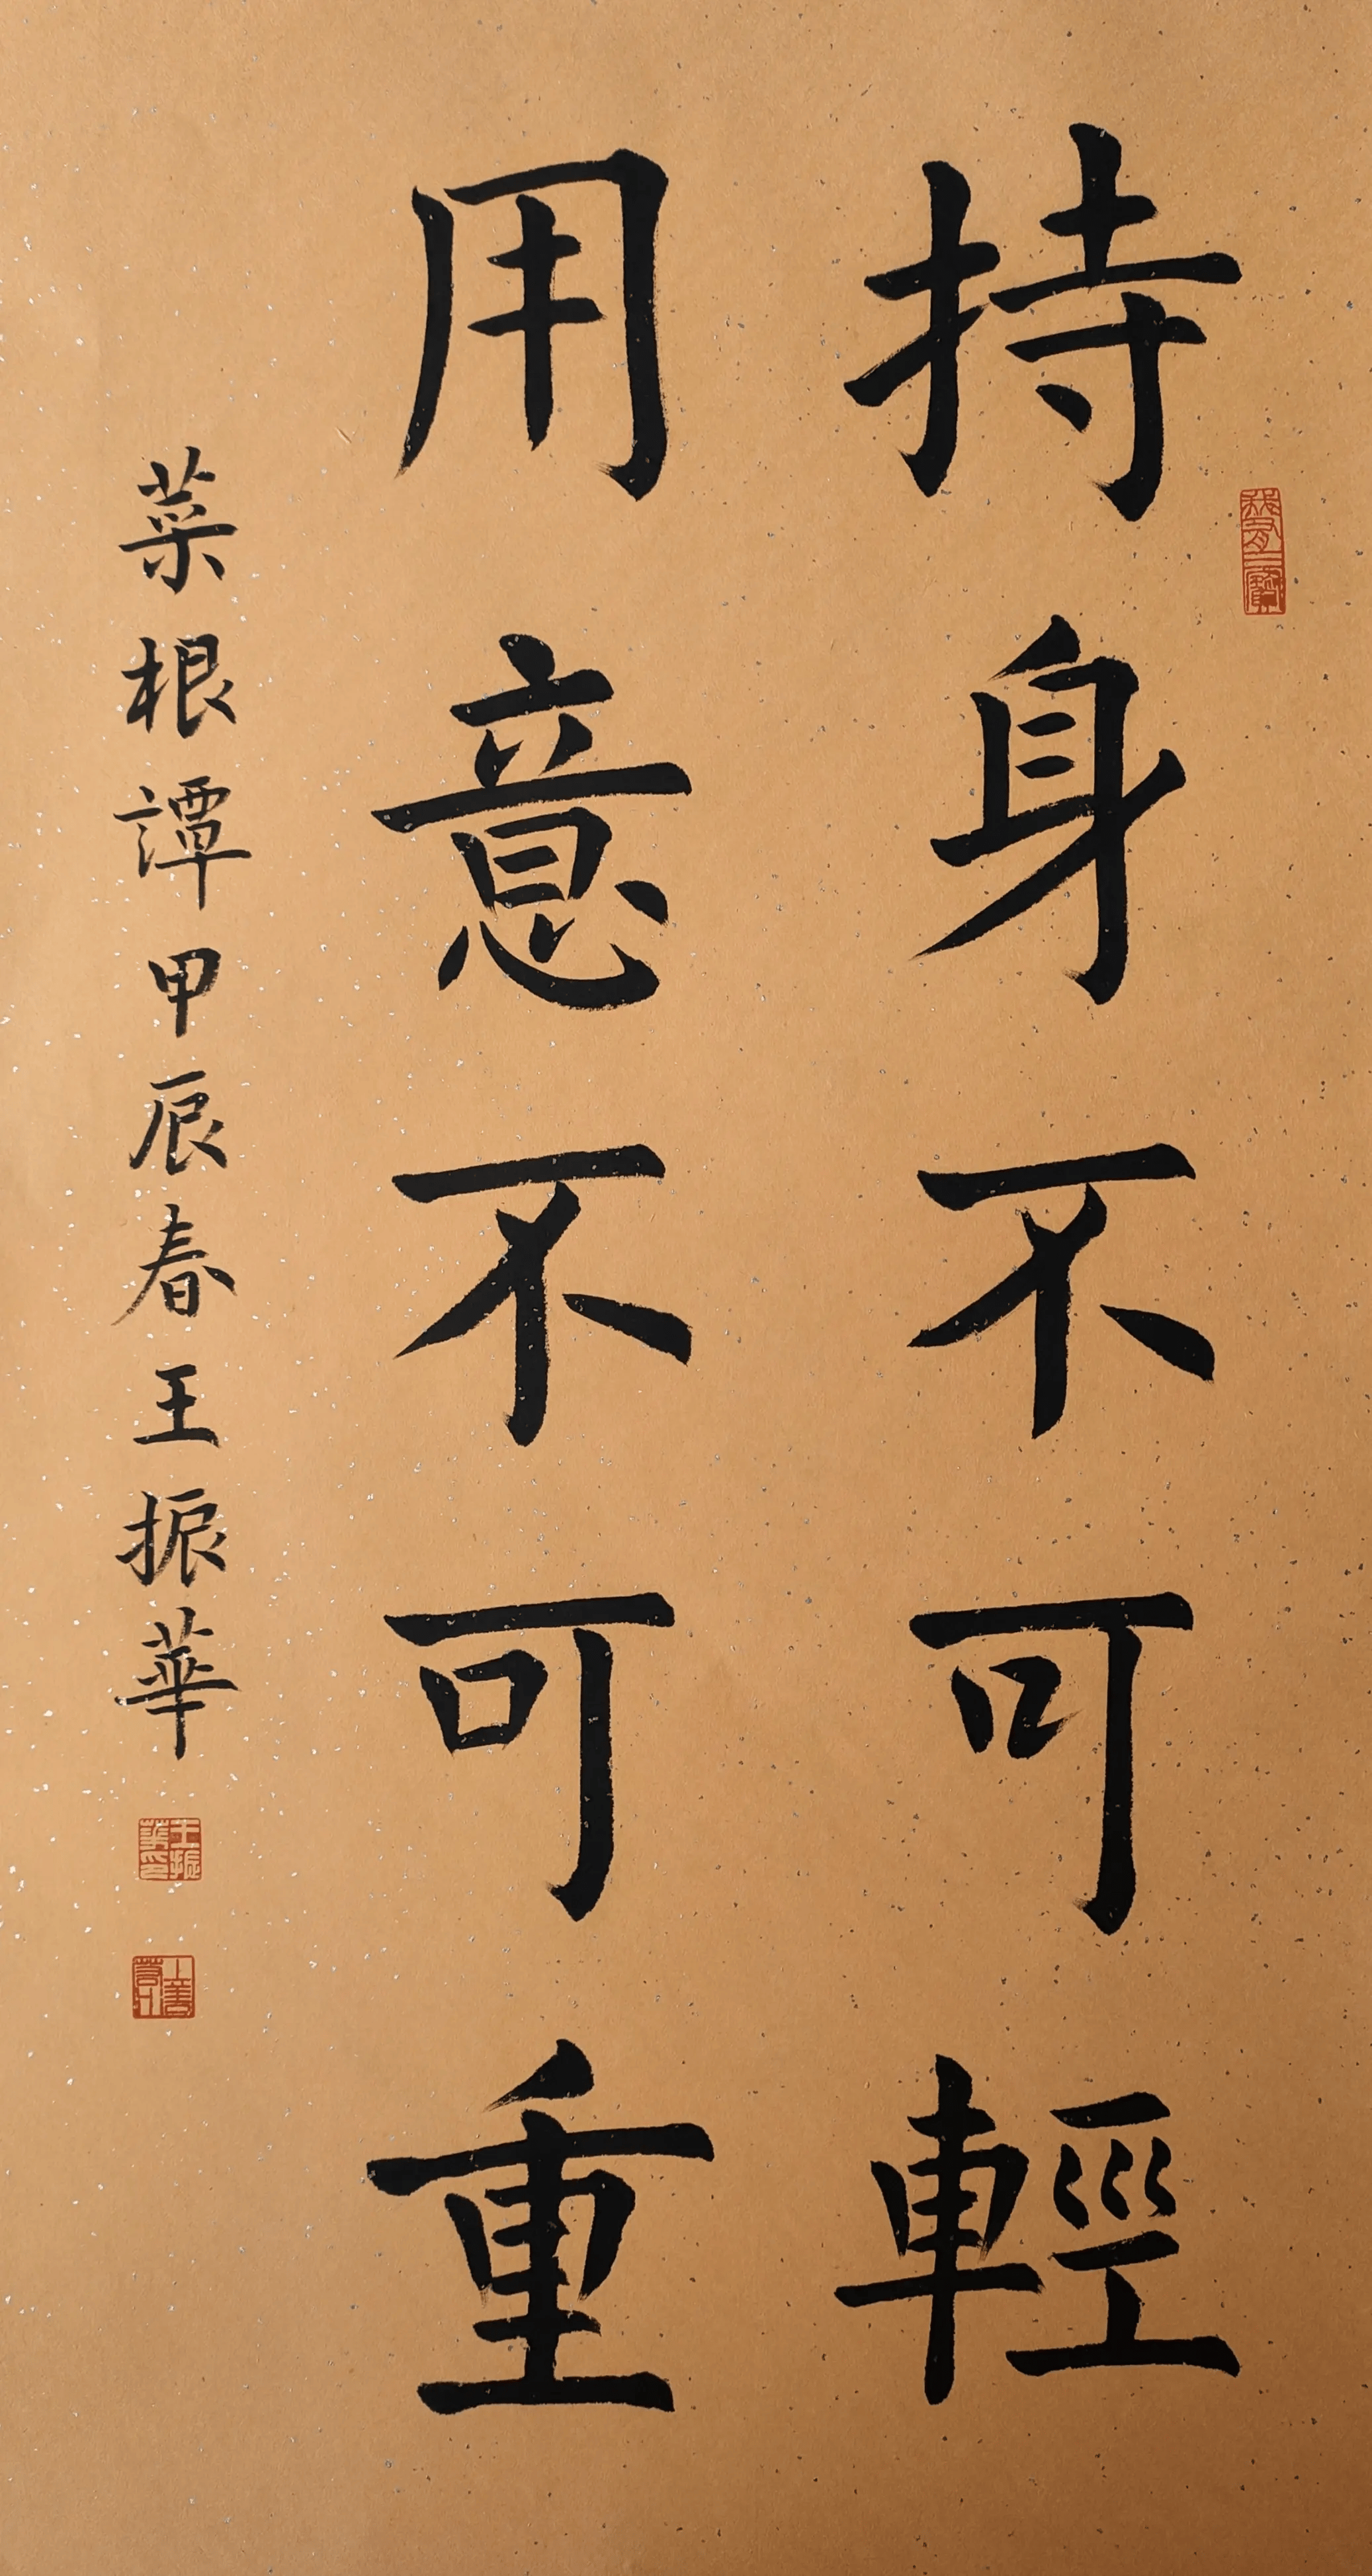 持身不可輕
用意不可重
菜根譚甲辰春王振華
王振華印